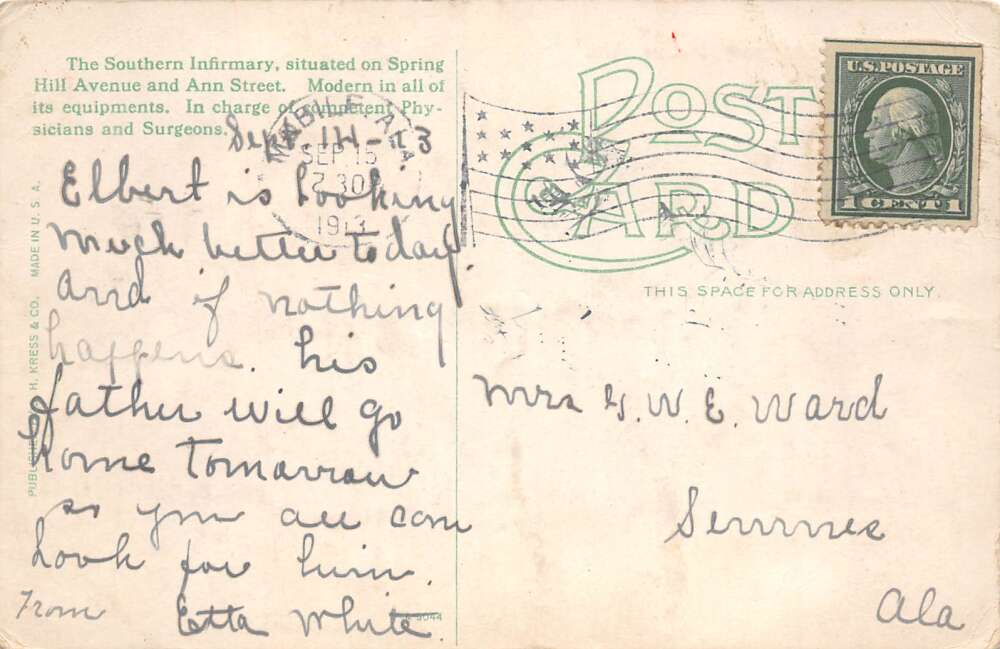 The Southern Infirmary, situated on Spring
Hill Avenue and Ann Street. Modern in all of
its equipments. In charge of competent Phy-
sicians and Surgeons.
Sept 14-13
Elbert is looking
much better today.
and if nothing
happens. his
father will go
home Tomarrow
so you all can
look for him.
From Etta White
MOBILE, ALA
SEP 15
7 30
1913
PUBLISHED H. KRESS & CO. MADE IN U. S. A.
POST
CARD
THIS SPACE FOR ADDRESS ONLY.
U.S. POSTAGE
1 CENT 1
Mrs G. W. E. Ward
Semmes
Ala